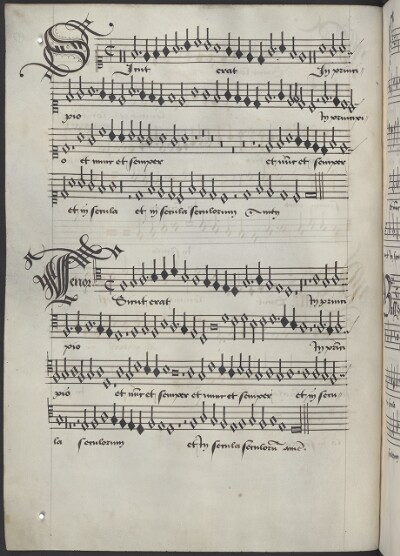 Sicut erat In princi
pio In principi
o et nunc et semper et nūc et semper
et in secula et in secula seculorum
Tenor Sicut erat In princi
pio In prin
pio et nūc et semper et nunc et semper et in secu
la seculorum et In secula seculorū amē